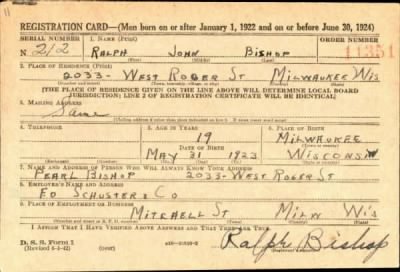 REGISTRATION CARD—(Men born on or after January 1, 1922 and on or before June 30, 1924)
SERIAL NUMBER 1. NAME (Print) ORDER NUMBER
N 212 RALPH JOHN BISHOP 11351
(First) (Middle) (Last)
2. PLACE OF RESIDENCE (Print)
2033- WEST ROGER ST MILWAUKEE WIS
(Number and street) (Town, township, village, or city) (County) (State)
[THE PLACE OF RESIDENCE GIVEN ON THE LINE ABOVE WILL DETERMINE LOCAL BOARD
JURISDICTION; LINE 2 OF REGISTRATION CERTIFICATE WILL BE IDENTICAL]
3. MAILING ADDRESS
Same
[Mailing address if other than place indicated on line 2. If same insert word same]
4. TELEPHONE 5. AGE IN YEARS 6. PLACE OF BIRTH
19 MILWAUKEE
DATE OF BIRTH (Town or county)
MAY 31 1923 WISCONSIN
(Exchange) (Number) (Mo.) (Day) (Yr.) (State or country)
7. NAME AND ADDRESS OF PERSON WHO WILL ALWAYS KNOW YOUR ADDRESS
PEARL BISHOP 2033- WEST ROGER ST
8. EMPLOYER'S NAME AND ADDRESS
ED SCHUSTER & CO
9. PLACE OF EMPLOYMENT OR BUSINESS
MITCHELL ST MILW WIS
(Number and street or R. F. D. number) (Town) (County) (State)
I AFFIRM THAT I HAVE VERIFIED ABOVE ANSWERS AND THAT THEY ARE TRUE.
D. S. S. Form 1
(Revised 6-9-42) (over)
Ralph Bishop